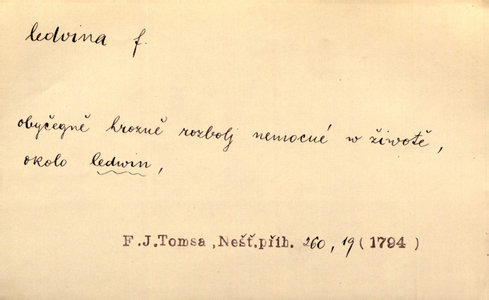 ledvina f.
obyčegně hrozně rozbolj nemocné w žiwotě,
okolo ledwin,
F.J.Tomsa,Nešť.příh. 260, 19 (1794)